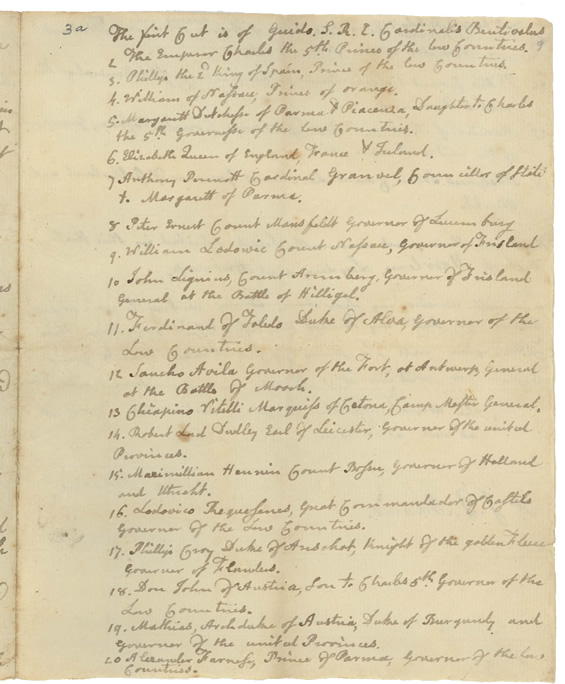 3a
The first Cut is of Guido. S. R. E. Cardinalis Bentivolus
9
2 The Emperor Charles the 5th Prince of the low Countries.
3. Phillip the 2d King of Spain, Prince of the low Countries.
4. William of Nassau, Prince of orange.
5. Margarett Dutchess of Parma & Piacenza, Daughter to Charles
the 5th Governess of the low Countries.
6. Elizabeth Queen of England, France & Ireland.
7 Anthony Perenott Cardinal Granvel, Councillor of State
to Margarett of Parma.
8 Peter Ernest Count Mansfeldt Governor of Luxemburg
9. William Lodowic Count Nassau, Governor of Frisland
10 John Liguius, Count Aremberg, Governor of Frisland
General at the Battle of Hilligel.
11. Ferdinand of Toledo Duke of Alva, Governor of the
Low Countries.
12 Sancho Avila Governor of the Fort, at Antwerp, General
at the Battle of Mooch.
13 Chiapino Vitelli Marquiss of Cetona, Camp Master General.
14. Robert Lord Dudley Earl of Leicester, Governor of the united
Provinces.
15. Maximillian Hennin Count Bossu, Governor of Holland
and Utricht.
16. Lodovico Requesenes, Great Commandador of Castile
Governor of the Low Countries.
17. Phillip Croy Duke of Arschot, Knight of the golden Fleece
Governor of Flanders.
18. Don John of Austria, Son to Charles 5th Governor of the
Low Countries.
19. Mathias, Archduke of Austria, Duke of Burgundy and
Governor of the united Provinces.
20 Alexander Farnese, Prince of Parma, Governor of the low
Countries.